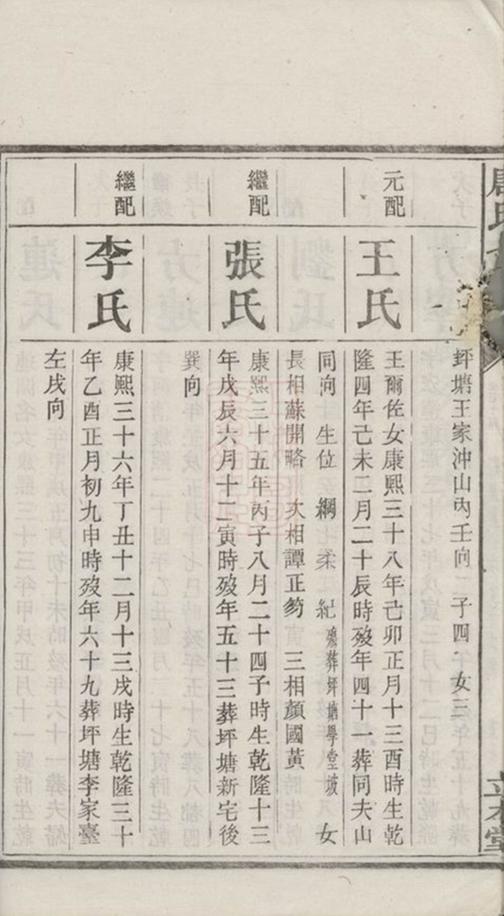 坪塘王家沖山丙壬向 子四 女三
元配
王氏
王爾佐女康熙三十八年己卯正月十三酉時生乾
隆四年己未二月二十辰時歿年四十一葬同夫山
同向 生位 綱 柔 紀 歿葬坪塘學堂坡 女
長相蘇開略 次相譚正芴 三相顏國黃
繼配
張氏
康熙三十五年丙子八月二十四子時生乾隆十三
年戊辰六月十二寅時歿年五十三葬坪塘新宅後
巽向
繼配
李氏
康熙三十六年丁丑十二月十三戌時生乾隆三十
年乙酉正月初九申時歿年六十九葬坪塘李家臺
左戌向